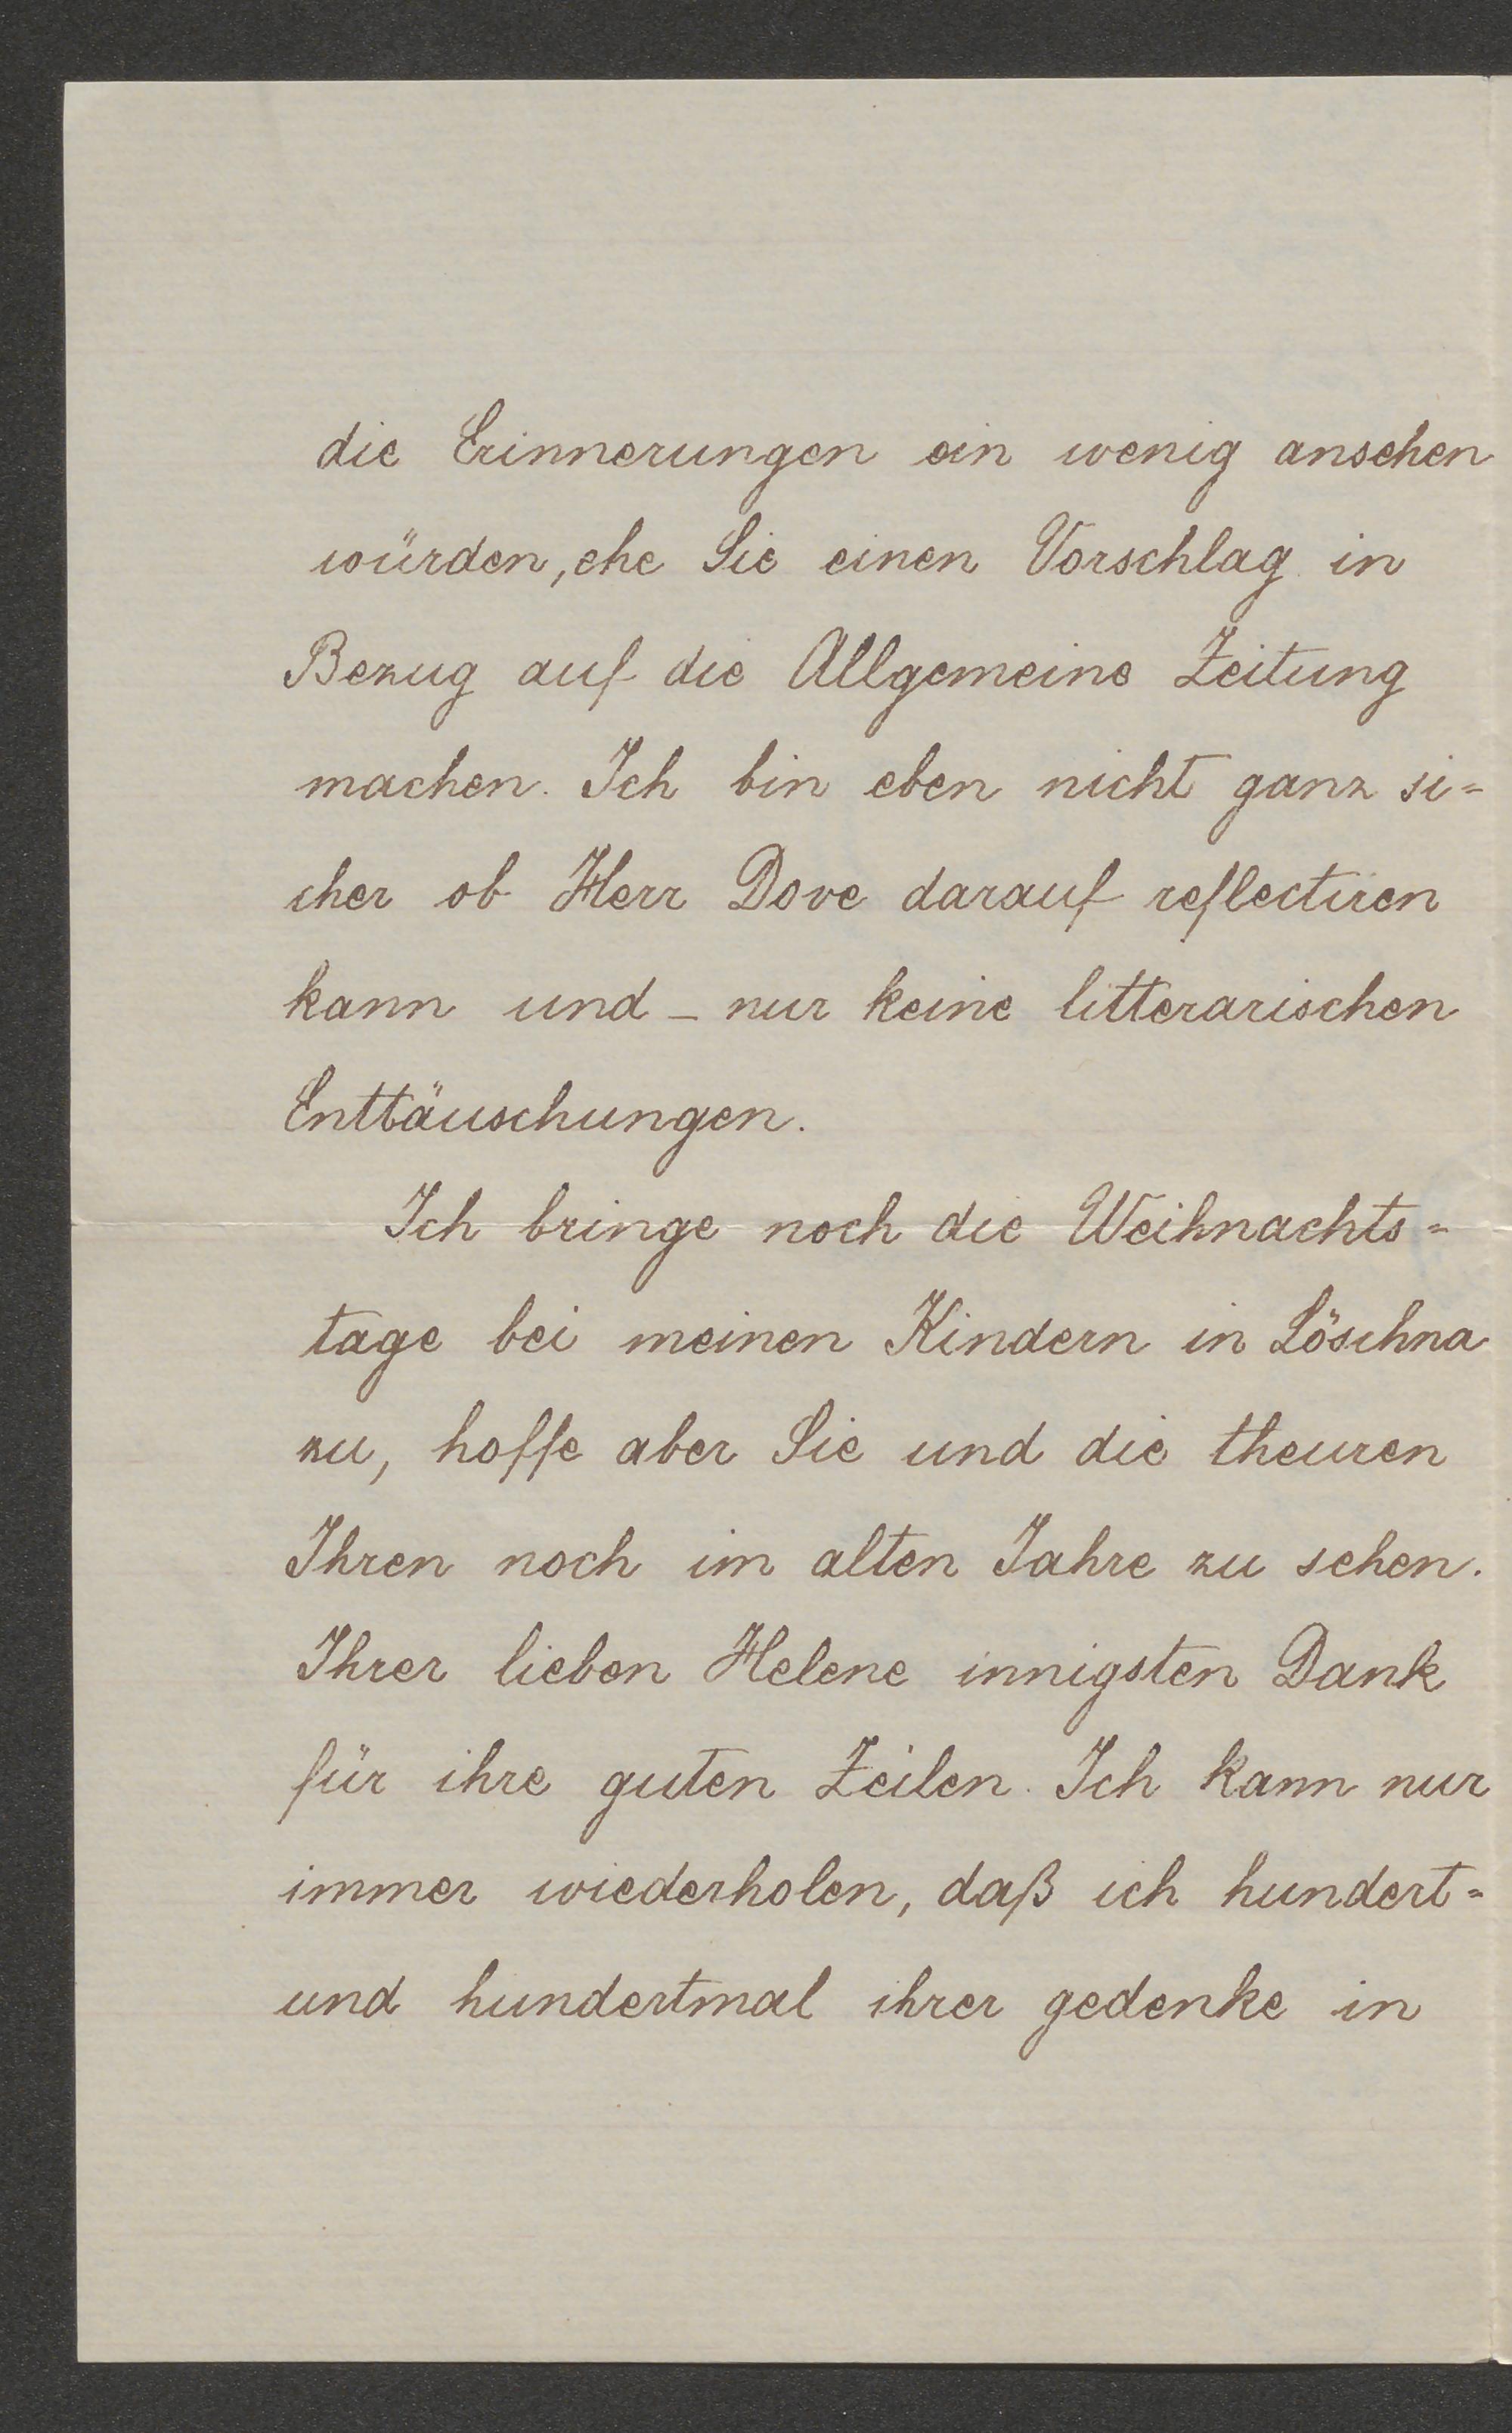 die Erinnerungen ein wenig ansehen
würden, ehe Sie einen Vorschlag in
Bezug auf die Allgemeine Zeitung
machen. Ich bin eben nicht ganz si=
cher ob Herr Dove darauf reflectiren
kann und – nur keine litterarischen
Enttäuschungen.
Ich bringe noch die Weihnachts=
tage bei meinen Kindern in Löschna
zu, hoffe aber Sie und die theuren
Ihren noch im alten Jahre zu sehen.
Ihrer lieben Helene innigsten Dank
für ihre guten Zeilen. Ich kann nur
immer wiederholen, daß ich hundert=
und hundertmal ihrer gedenke in